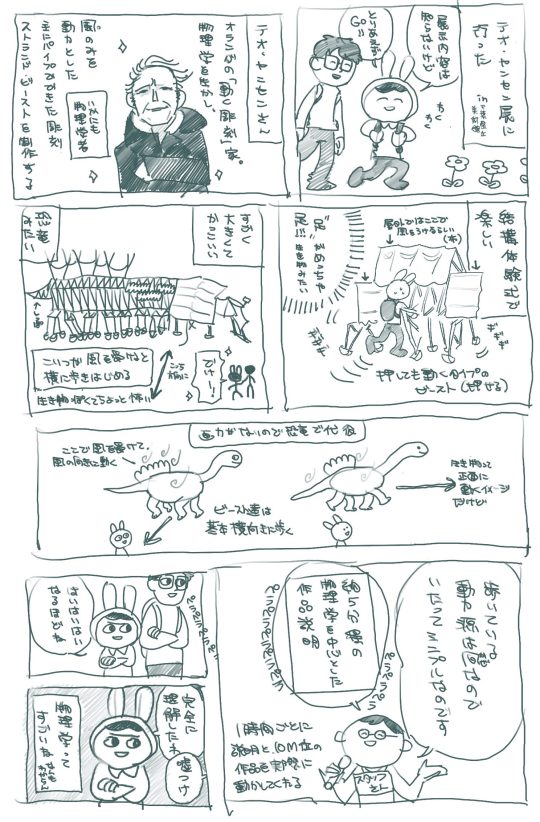 テオ・ヤンセン展に
行った
展示内容は
知らないけど
とりあえず
Go!!
わく
わく
テオ・ヤンセンさん
オランダの「動く彫刻」家。
物理学を生かし、
風のみを
動力とした
主にパイプでできた彫刻
ストランド・ビーストを制作する
いかにも
物理学者
結構体験式で
楽しい
屋外ではここで
風をうけるらしい
(帆)
“足”がめっちゃ
足!!!
生き物みたい
ギギギ
押しても動くタイプの
ビースト(押せる)
すごく
大きくて
かっこいい
恐竜
みたい
こいつが風を受けると
横に歩きはじめる
生き物っぽくてちょっと怖い
こっち
横向に
でけー!
画力がないので恐竜で代役
ここで風を受けて、
風の向きに動く
ビースト達は
基本横向きに歩く
生き物って
正面に
動くイメージ
だけど
歩いている
動力源は風なので
いたってシンプルなのです
約5分程の
物理学を中心とした
作品説明
ペラペラペラペラ
1時間ごとに
説明と、10M位の
作品を実際に
動かしてくれる
スタッフ
さん
はいはいはい
なるほどね
ペラペラペラペラ
完全に
理解したわ
嘘つけ
物理学って
すごいなぁ